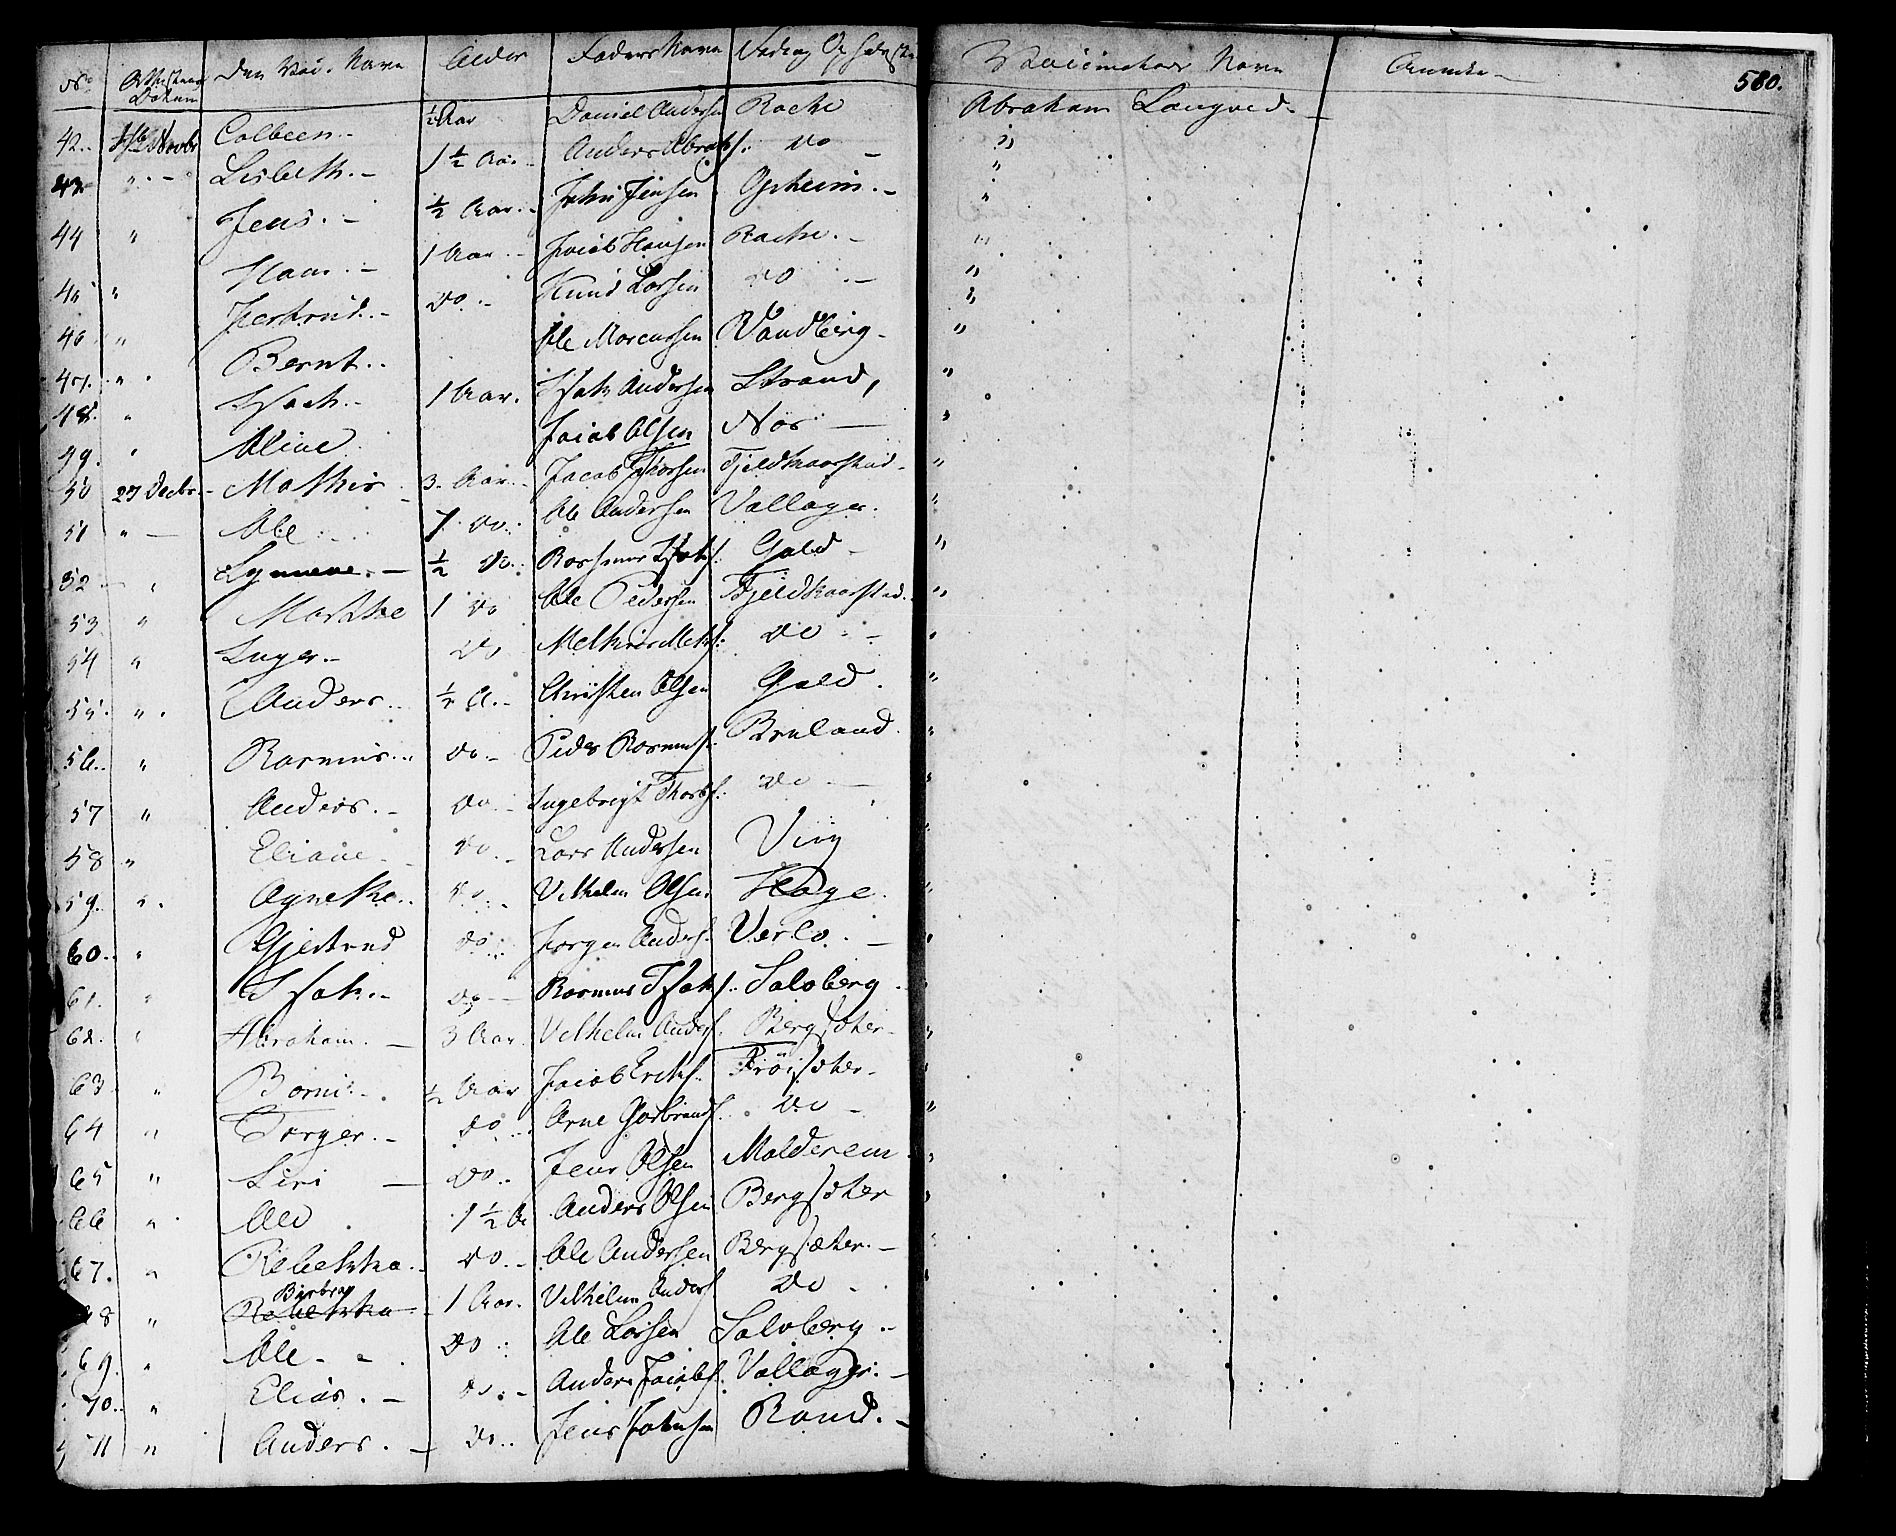 No Attestens Datum Den Vac. Navn Alder Faders Navn Vedkog Opholdsste Vaccinateur Navn Anmerk 580.
42 Novbr Colbeen ½ Aar Daniel Andersen Rache Abraham Langved
43 " Lisbeth 1½ Aar Anders Abrahs. do "
44 " Jens ½ Aar John Jensen Opheim "
45 " Hans 1 Aar Jacob Hansen Rache "
46 " Jertrud do Knud Larsen do "
47 " Bernt Ole Marcussen Vandberg "
48 " Isach 1 Aar Isak Andersen Strand "
49 " Aline Jacob Olsen Nos "
50 27 Decbr Mathis 3 Aar Jacob Thorsen Fjeldkaarstad "
51 " Ole 7 do Ole Andersen Vollager "
52 " Synneve ½ do Rasmus Isaks. Gald "
53 " Marthe 1 do Ole Pedersen Fjeldkaarstad "
54 " Inger do Melkior Melks. do "
55 " Anders ½ A. Christen Olsen Gald "
56 " Rasmus do Peder Rasmuss. Bruland "
57 " Anders do Ingebrigt Thorbs. do "
58 " Eliane do Lars Andersen Viig "
59 " Agnethe do Vilhelm Olsen Hage "
60 " Gjertrud do Jørgen Anders. Verlo "
61 " Isak do Rasmus Isaks. Solvberg "
62 " Abraham 3 Aar Vilhelm Anders. Bergsæter "
63 " Borni ½ Aar Jacob Eriks. Frøisæter "
64 " Torger do Arne Gulbrands. do "
65 " Siri do Jens Olsen Molderem "
66 " Ole 1½ A Anders Olsen Bergsæter "
67 " Rebekka do Ole Andersen Bergsæter "
68 " Birbro Rebekka 1 Aar Vilhelm Anders. do
69 " Ole do Ole Larsen Solvberg
70 " Elias do Anders Jacobs. Vollager
71 " Anders do Jens Johnsen Rand